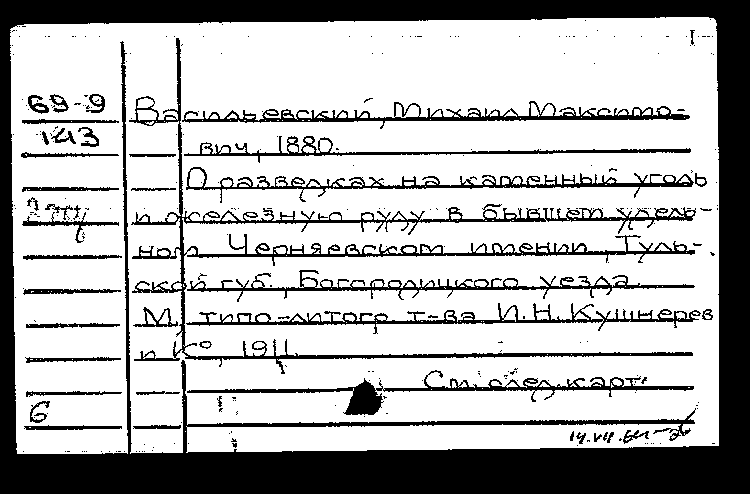 I
69-9
143
Васильевский, Михаил Максимо-
вич, 1880.
О разведках на каменный уголь
и железную руду в бывшем удель-
ном Черняевском имении, Туль-
ской губ., Богородицкого уезда.
М., типо-литогр. т-ва И.Н. Кушнерев
и К°, 1911.
См. след. карт.
6